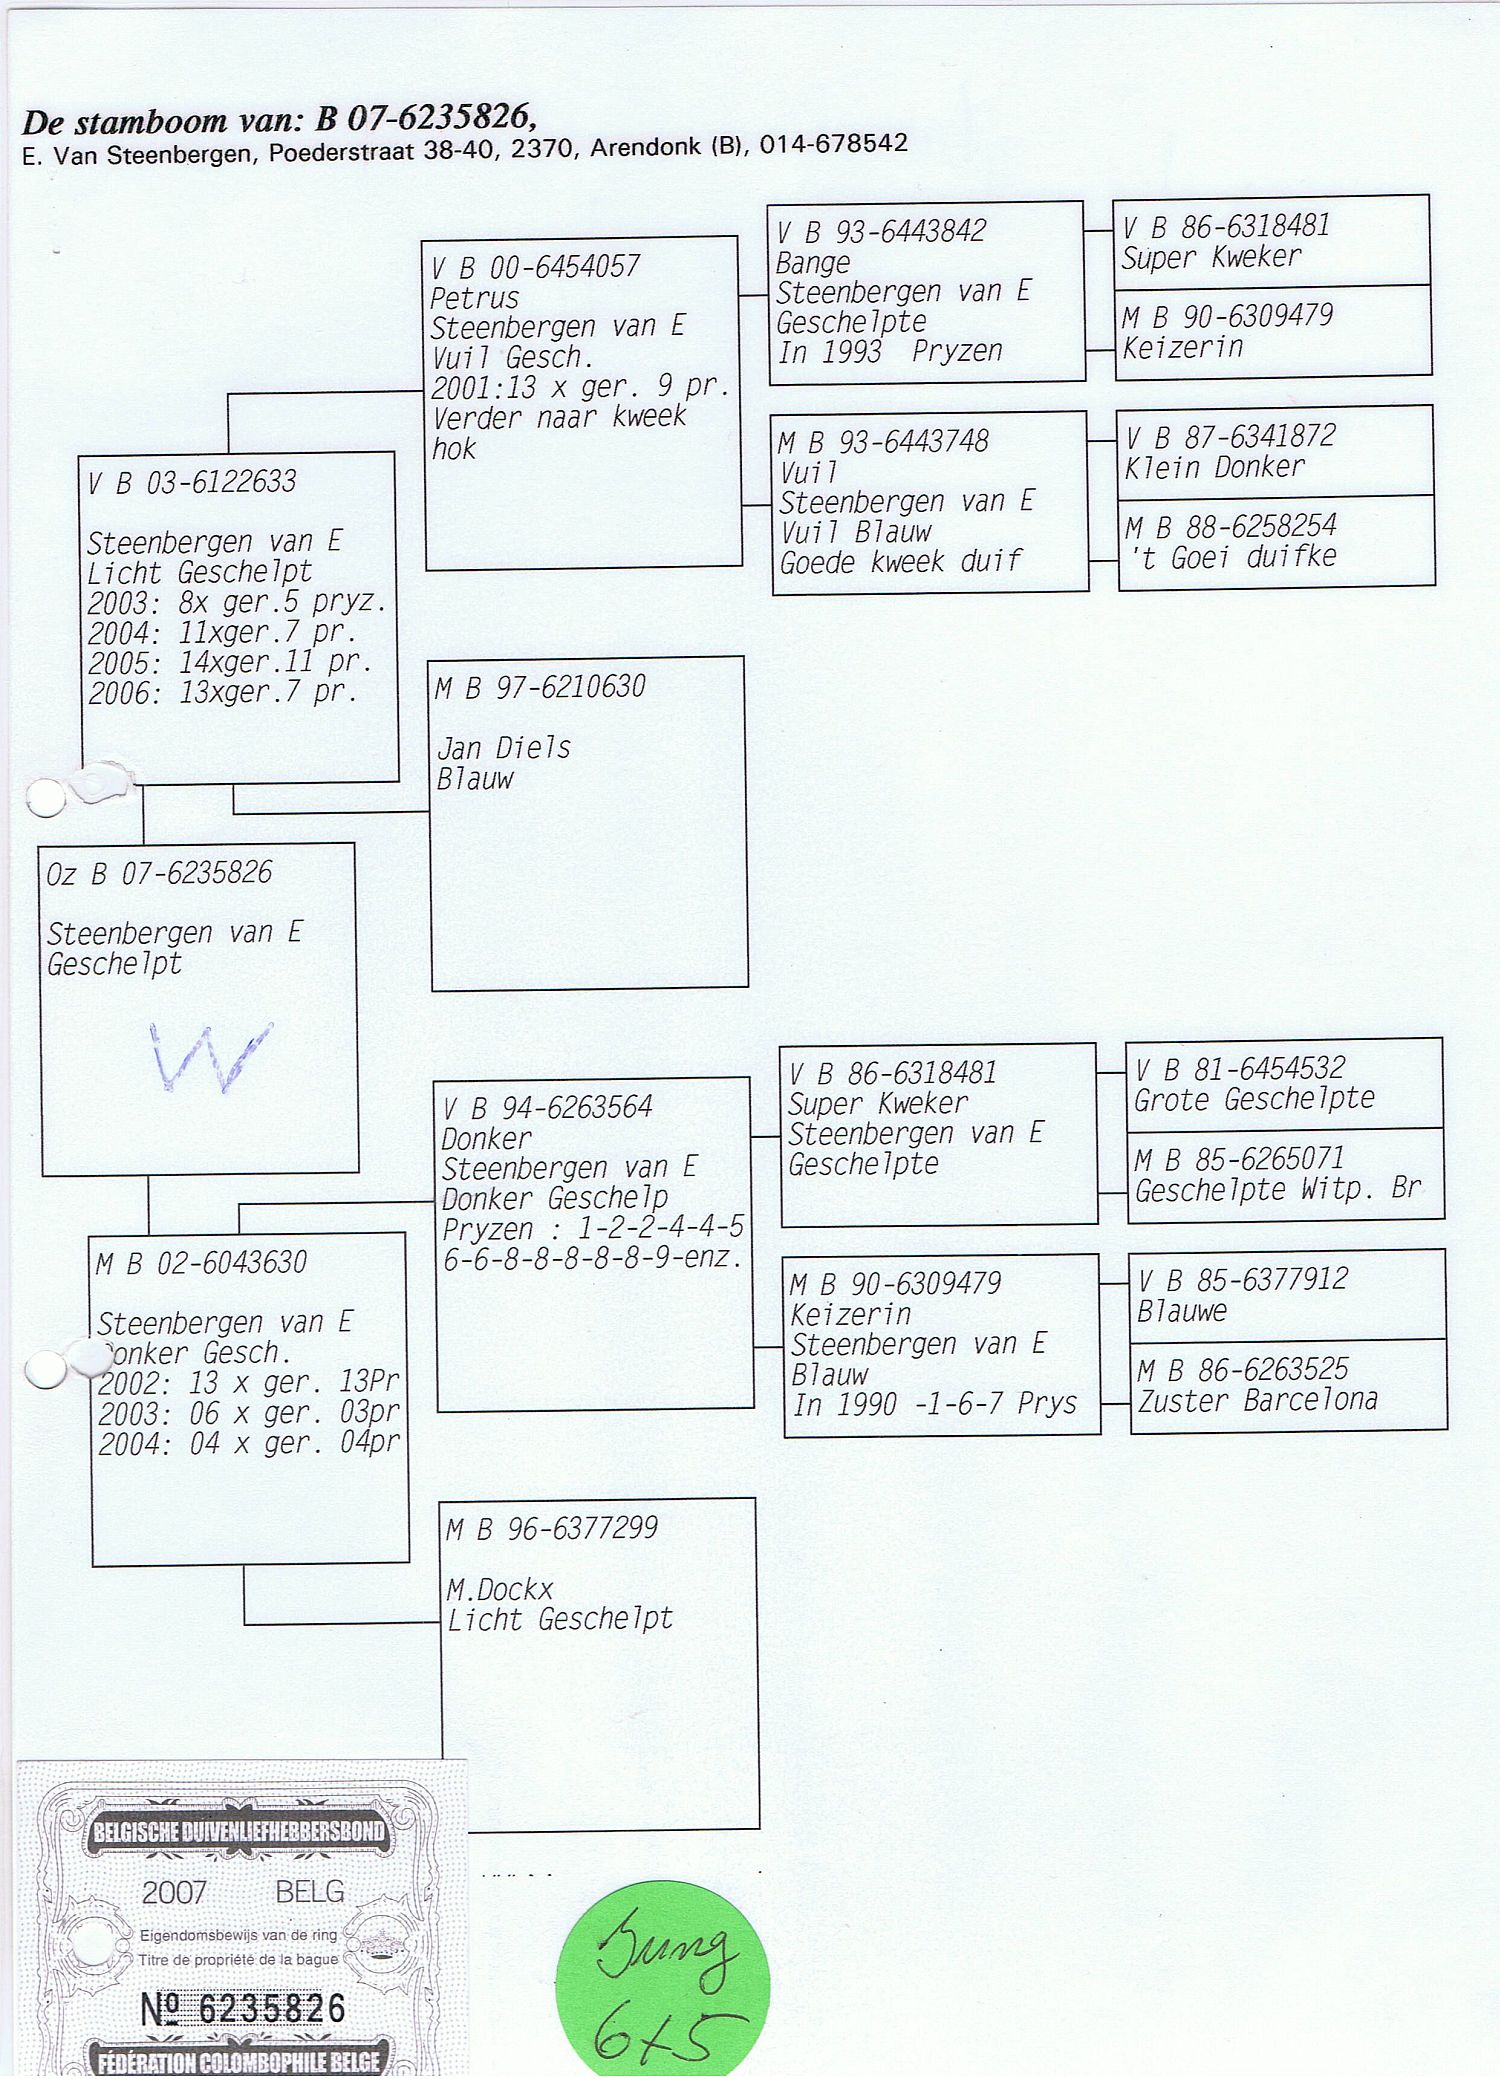 De stamboom van: B 07-6235826,
E. Van Steenbergen, Poederstraat 38-40, 2370, Arendonk (B), 014-678542
V B 03-6122633
Steenbergen van E
Licht Geschelpt
2003: 8x ger.5 pryz.
2004: 11xger.7 pr.
2005: 14xger.11 pr.
2006: 13xger.7 pr.
Oz B 07-6235826
Steenbergen van E
Geschelpt
W
M B 02-6043630
Steenbergen van E
Donker Gesch.
2002: 13 x ger. 13Pr
2003: 06 x ger. 03pr
2004: 04 x ger. 04pr
V B 00-6454057
Petrus
Steenbergen van E
Vuil Gesch.
2001:13 x ger. 9 pr.
Verder naar kweek
hok
M B 97-6210630
Jan Diels
Blauw
V B 94-6263564
Donker
Steenbergen van E
Donker Geschelp
Pryzen : 1-2-2-4-4-5
6-6-8-8-8-8-8-9-enz.
M B 96-6377299
M.Dockx
Licht Geschelpt
V B 93-6443842
Bange
Steenbergen van E
Geschelpte
In 1993  Pryzen
M B 93-6443748
Vuil
Steenbergen van E
Vuil Blauw
Goede kweek duif
V B 86-6318481
Super Kweker
Steenbergen van E
Geschelpte
M B 90-6309479
Keizerin
Steenbergen van E
Blauw
In 1990 -1-6-7 Prys
V B 86-6318481
Super Kweker
M B 90-6309479
Keizerin
V B 87-6341872
Klein Donker
M B 88-6258254
't Goei duifke
V B 81-6454532
Grote Geschelpte
M B 85-6265071
Geschelpte Witp. Br
V B 85-6377912
Blauwe
M B 86-6263525
Zuster Barcelona
BELGISCHE DUIVENLIEFHEBBERSBOND
2007 BELG
Eigendomsbewijs van de ring
Titre de propriété de la bague
Nº 6235826
FÉDÉRATION COLOMBOPHILE BELGE
Jung
6x5